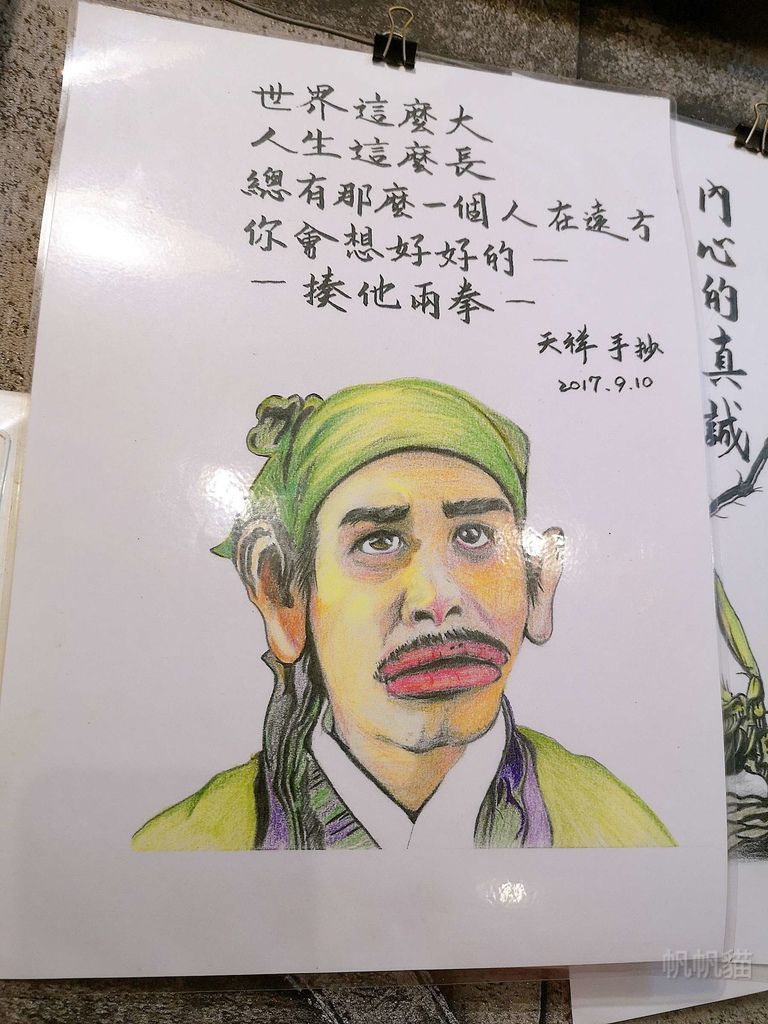 世界這麼大
人生這麼長
總有那麼一個人在遠方
你會想好好的—
—揍他兩拳—
天祥 手抄
2017.9.10
內心的真誠
帆帆貓